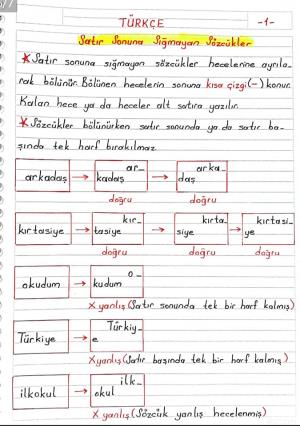 577
TÜRKÇE
-1-
Satır Sonuna Sığmayan Sözcükler
* Satır sonuna sığmayan sözcükler hecelerine ayrıla-
rak bölünür. Bölünen hecelerin sonuna kısa çizgi(-) konur.
Kalan hece ya da heceler alt satıra yazılır.
* Sözcükler bölünürken satır sonunda ya da satır ba-
şında tek harf bırakılmaz.
arkadaş → ar- → arka-
kadaş daş
doğru doğru
kırtasiye → kır- → kırta- → kırtasi-
tasiye siye ye
doğru doğru doğru
okudum → o-
kudum
X yanlış (Satır sonunda tek bir harf kalmış)
Türkiye → Türkiy-
e
X yanlış (Satır başında tek bir harf kalmış)
ilkokul → ilk-
okul
X yanlış (Sözcük yanlış hecelenmiş)